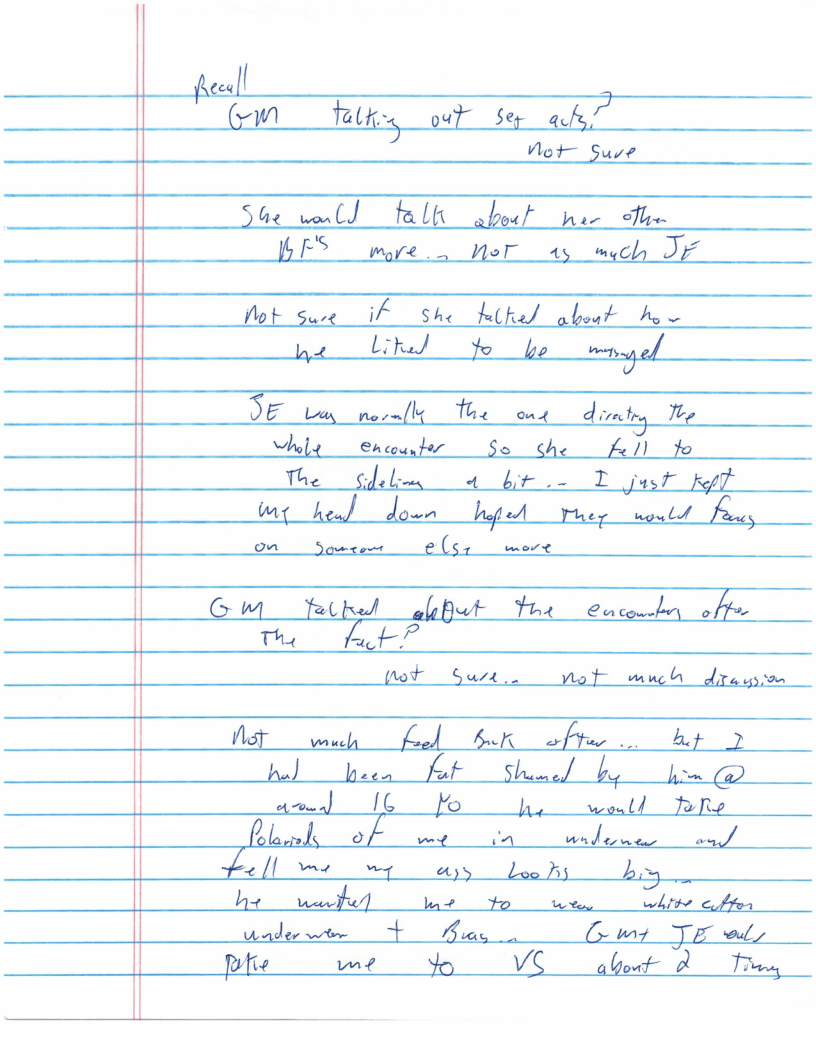 Recall
GM talking out sex acts?
not sure
She would talk about her other
BF's more.. not as much JE
Not sure if she talked about how
he Liked to be massaged
JE was normally the one directing the
whole encounter so she fell to
The sidelines a bit .. I just kept
my head down hoped They would focus
on someone else more
GM talked about the encounters after
The fact?
not sure.. not much discussion
Not much feed Back after ... but I
had been fat shamed by him @
around 16 YO he would take
Polaroids of me in underwear and
tell me my ass Looks big..
he wanted me to wear white cotton
underwear + Bras.. GM + JE would
take me to VS about 2 Times